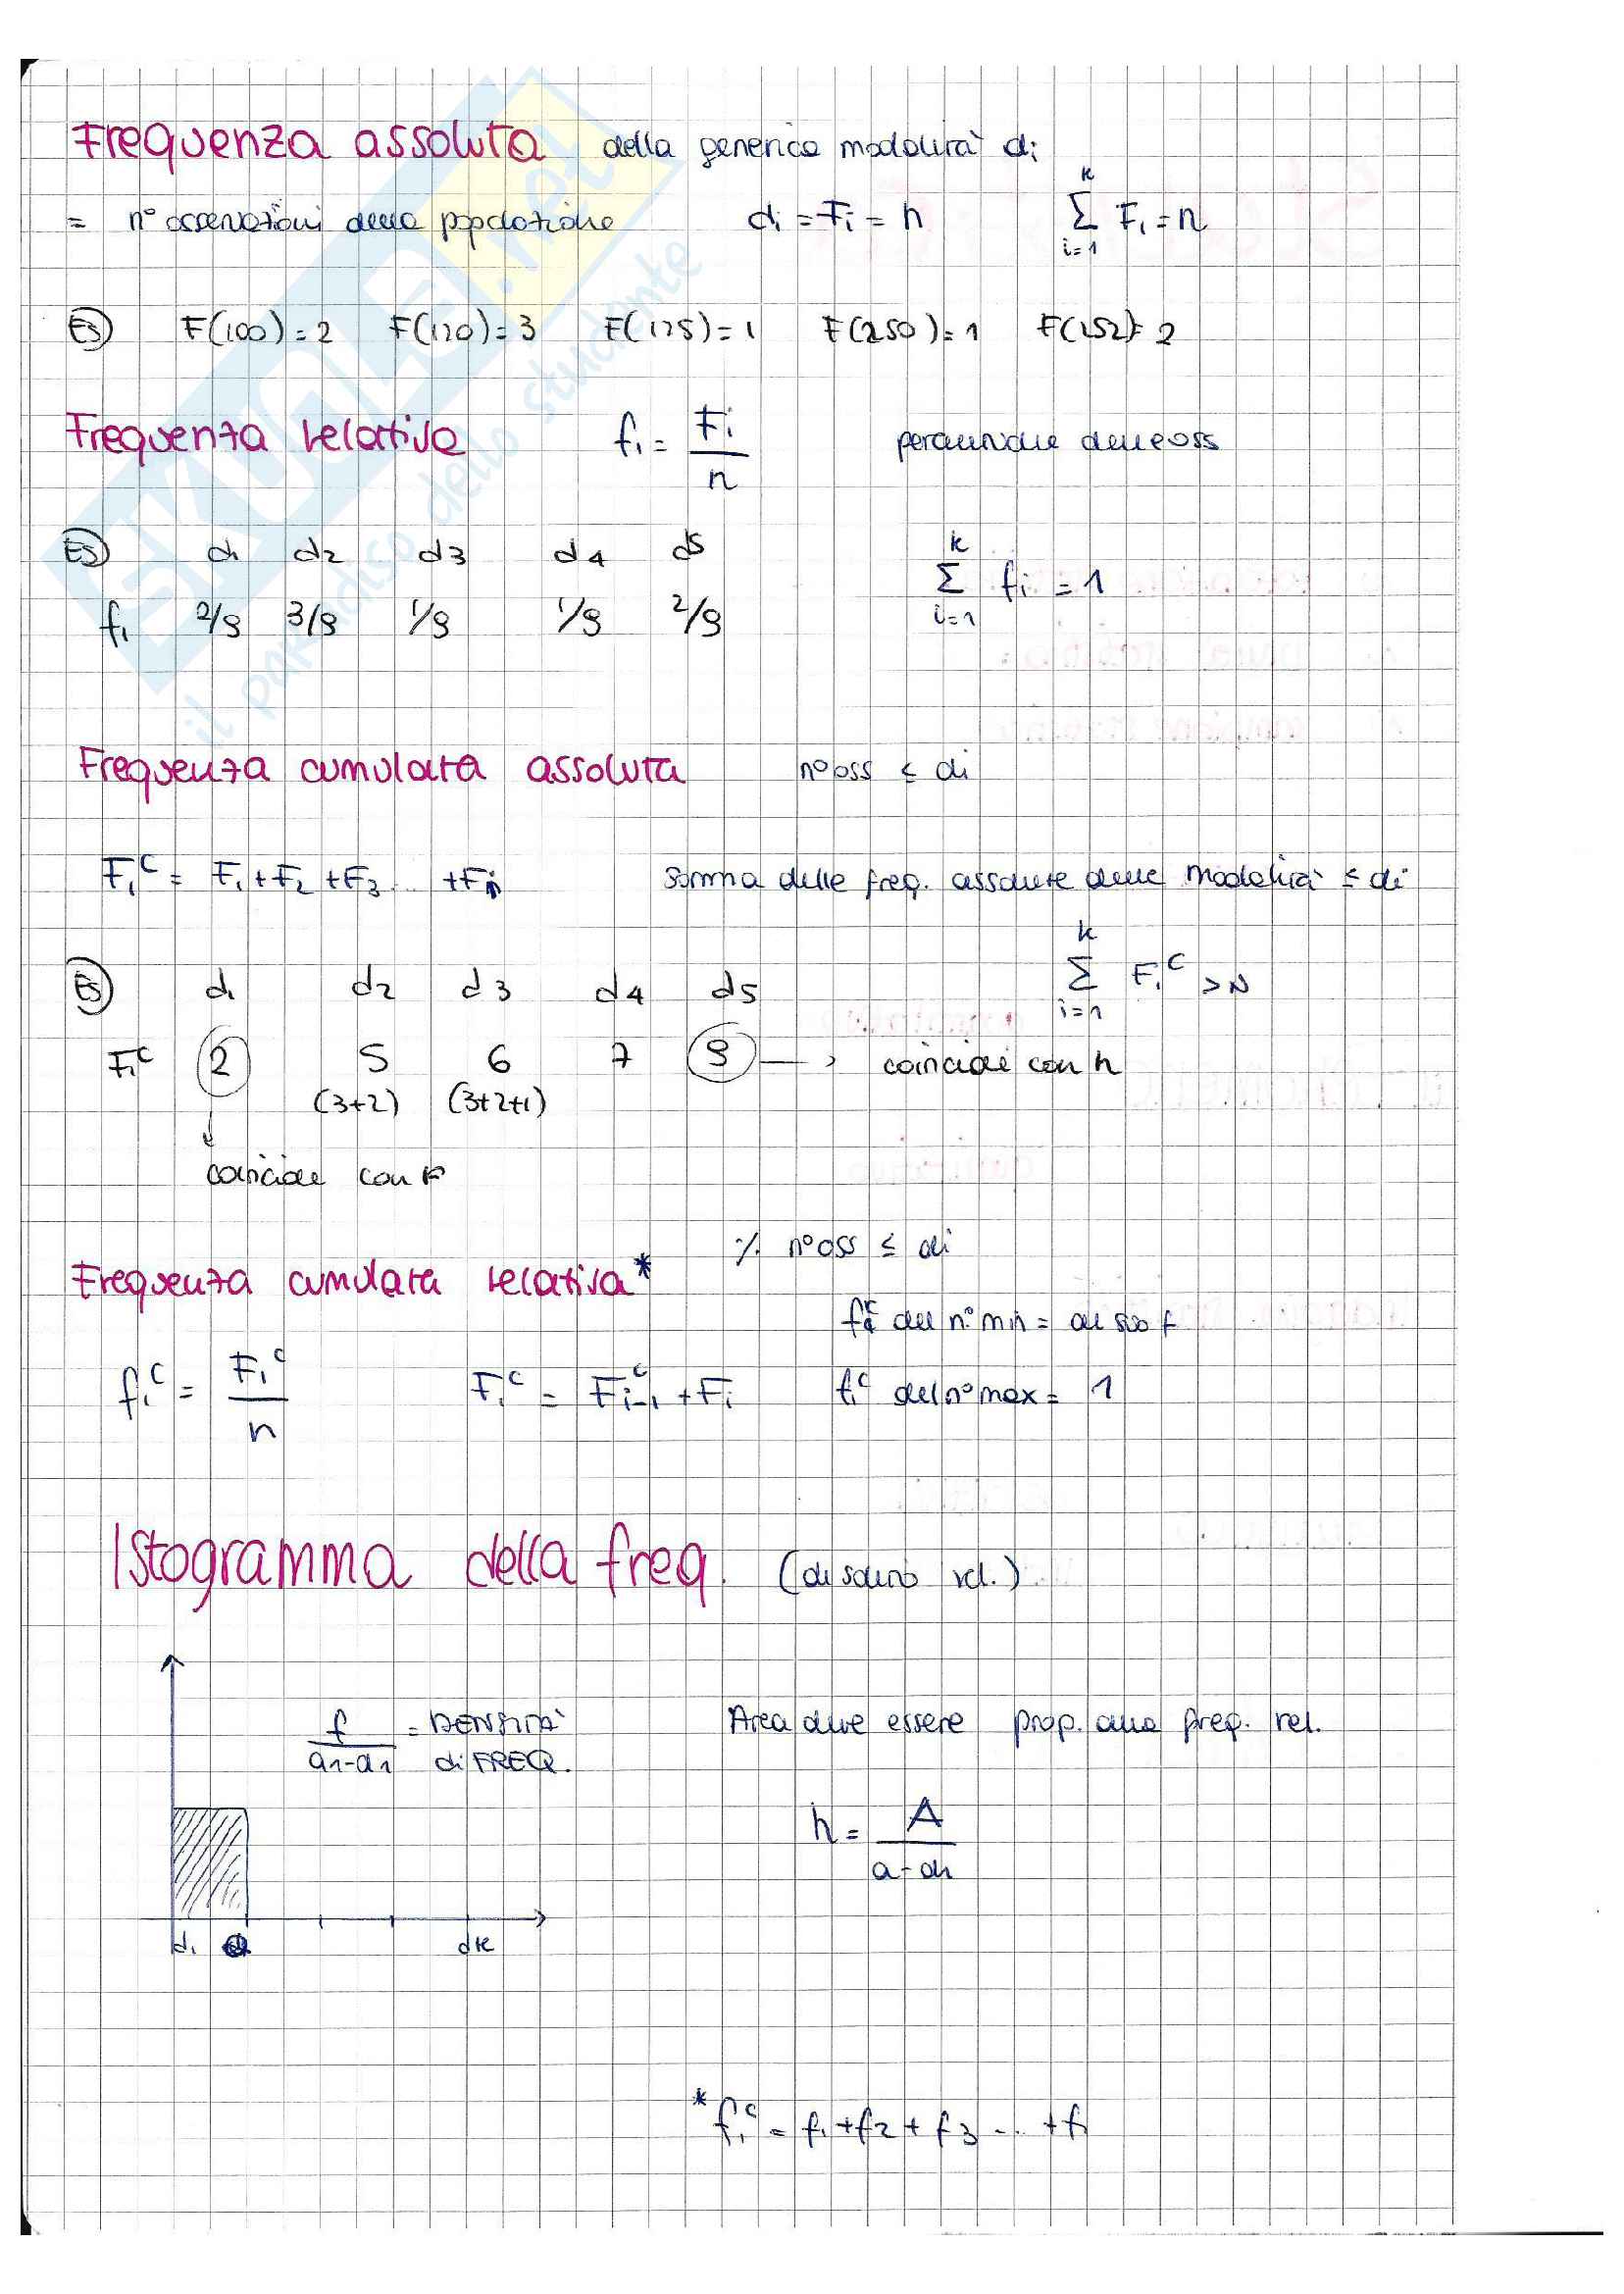 Frequenza assoluta della generica modalità di
= n° osservazioni della popolazione di = Fi = n
k
Σ Fi = n
i=1
Es F(100)=2 F(120)=3 F(125)=1 F(250)=1 F(252)=2
Frequenza relativa fi = Fi/n percentuale delle oss
Es d1 d2 d3 d4 d5
fi 2/9 3/9 1/9 1/9 2/9
k
Σ fi = 1
i=1
Frequenza cumulata assoluta n° oss ≤ di
Fi^c = F1+F2+F3... +Fi somma delle freq. assolute delle modalità ≤ di
Es d1 d2 d3 d4 d5
k
Σ Fi^c > N
i=1
Fi^c 2 5 6 7 9 → coincide con n
(3+2) (3+2+1)
coincide con F
% n° oss ≤ di
Frequenza cumulata relativa*
fi^c del n° min = al suo f
fi^c = Fi^c/n Fi^c = F^c i-1 + Fi fi^c del n° max = 1
Istogramma della freq. (di solito rel.)
f/(a1-a1) = DENSITÀ di FREQ.
Area deve essere prop. alla freq. rel.
h = A/
d1 dk
* fi^c = f1+f2+f3 ... +fi
SKUOLA.net
il paradiso dello studente